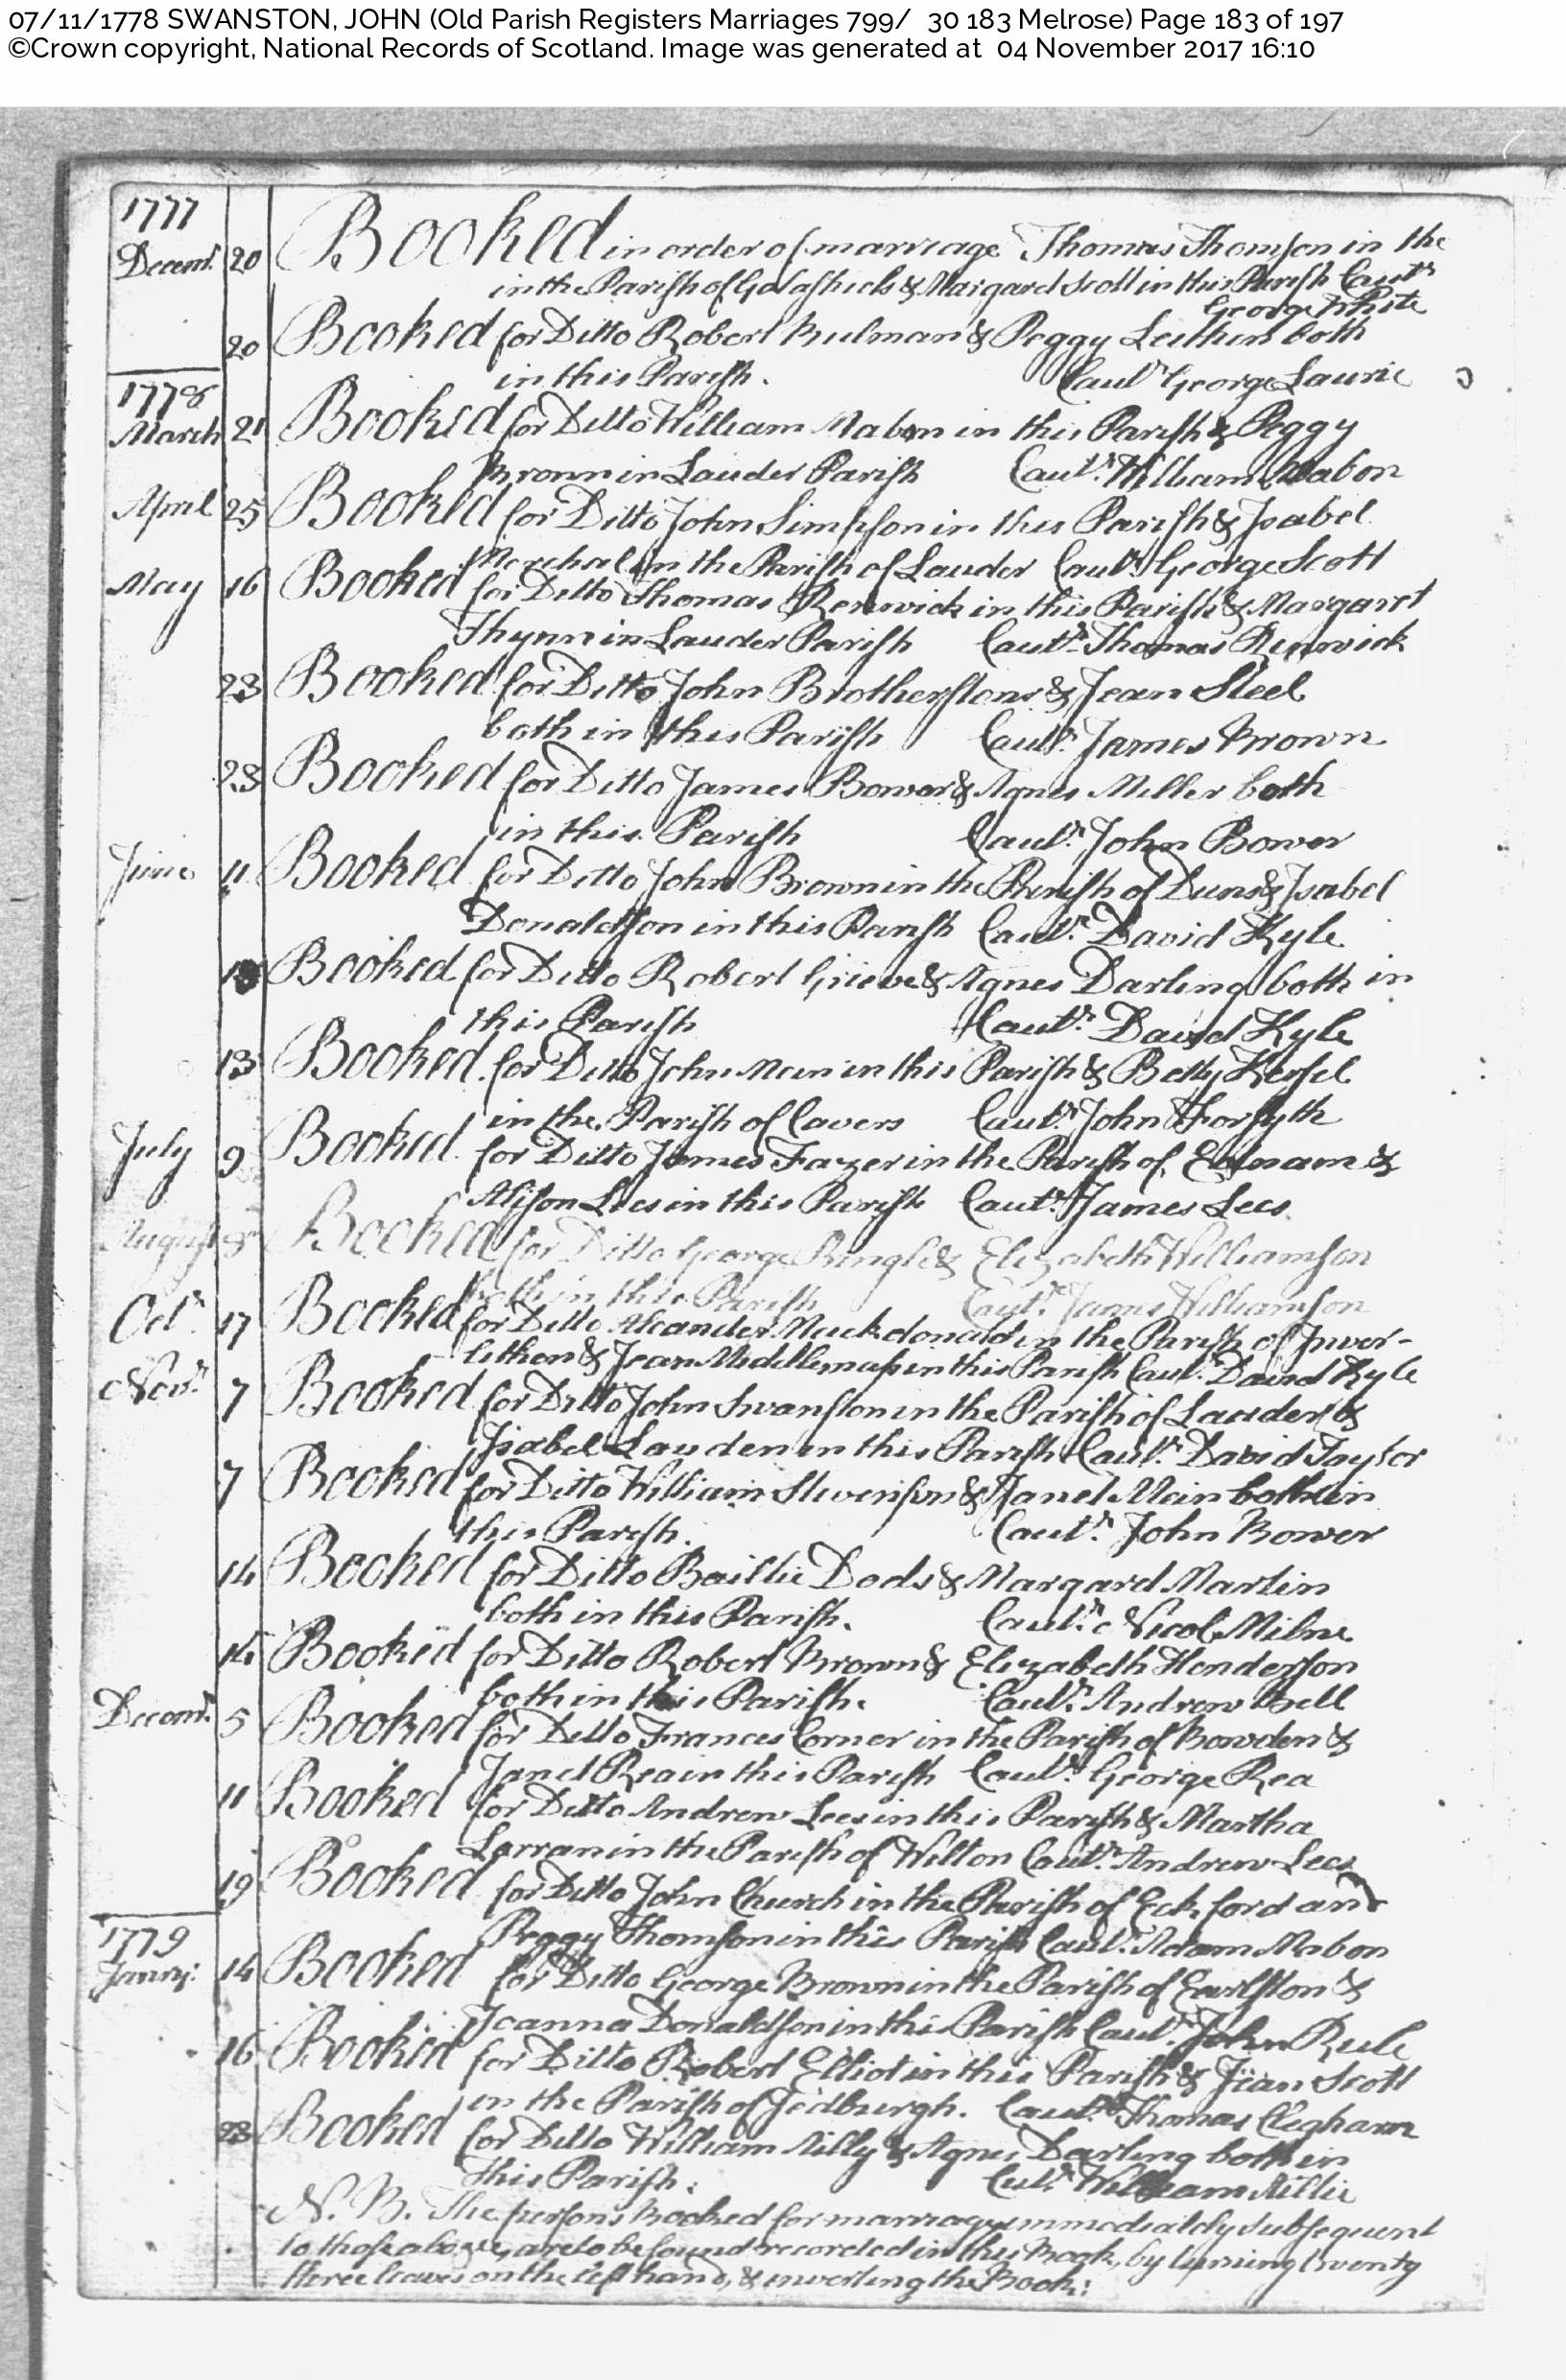 07/11/1778 SWANSTON, JOHN (Old Parish Registers Marriages 799/ 30 183 Melrose) Page 183 of 197
©Crown copyright, National Records of Scotland. Image was generated at 04 November 2017 16:10
1777
Decemr. 20 Booked in order of marriage Thomas Thomson in the
in the Parish of Galashiels & Margard Scott in this Parish Cautr.
George White
20 Booked for Ditto Robert & Peggy both
in this Parish. Cautr. George Laurie
1778
March 21 Booked for Ditto William Mabon in this Parish & Peggy
Brown in Lauder Parish Cautr. William Mabon
April 25 Booked for Ditto John Simpson in this Parish & Isabel
in the Parish of Lauder Cautr. George Scott
May 16 Booked for Ditto Thomas Renwick in this Parish & Margaret
Thynn in Lauder Parish Cautr. Thomas Renwick
23 Booked for Ditto John Brotherstons & Jean Steel
both in this Parish Cautr. James Brown
23 Booked for Ditto James Bower & Agnes Miller both
in this Parish Cautr. John Bower
June 11 Booked for Ditto John Brown in the Parish of Duns & Isabel
Donaldson in this Parish Cautr. David Kyle
Booked for Ditto Robert Grieve & Agnes Darling both in
this Parish Cautr. David Kyle
13 Booked for Ditto John Mein in this Parish & Betty
in the Parish of Cavers Cautr. John Forsyth
July 9 Booked for Ditto James Fazer in the Parish of Ednam &
Alison Lees in this Parish Cautr. James Lees
August 8 Booked for Ditto George Pringle & Elizabeth Williamson
both in this Parish Cautr. James Williamson
Octr. 17 Booked for Ditto Mackdonald in the Parish of Inver-
& Jean Middlemass in this Parish Cautr. David Kyle
Novr. 7 Booked for Ditto John Swanston in the Parish of Lauder &
Isabel Lauden in this Parish Cautr. David Taylor
7 Booked for Ditto William Stevenson & Janet Mein both in
this Parish. Cautr. John Bower
14 Booked for Ditto Baillie Dods & Margard Martin
both in this Parish. Cautr. Nicol Milne
14 Booked for Ditto Robert Brown & Elizabeth Henderson
both in this Parish. Cautr. Andrew Bell
Decemr. 5 Booked for Ditto Frances Corner in the Parish of Bowden &
Janet Rea in this Parish Cautr. George Rea
11 Booked for Ditto Andrew Lees in this Parish & Martha
in the Parish of Wilton Cautr. Andrew Lees
19 Booked for Ditto John Church in the Parish of Eckford and
Peggy Thomson in this Parish Cautr. Adam Mabon
1779
Janry: 14 Booked for Ditto George Brown in the Parish of Earlston &
Joanna Donaldson in this Parish Cautr. John Rule
16 Booked for Ditto Robert Elliot in this Parish & Jean Scott
in the Parish of Jedburgh. Cautr. Thomas Cleghorn
23 Booked for Ditto William & Agnes Darling both in
this Parish: Cutr. William
N. B. The persons Booked for marriage immediatly subsequent
to those above, are to be found recorded in this Book, by turning twenty
three leaves on the left hand, & inverting the Book: